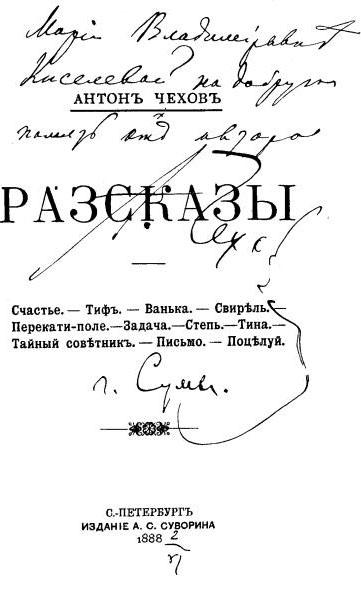 Маріи Владиміровнѣ
Киселевой на добрую
АНТОНЪ ЧЕХОВЪ
память отъ автора
РАЗСКАЗЫ
Счастье. — Тифъ. — Ванька. — Свирѣль. —
Перекати-поле.—Задача.—Степь.—Тина.—
Тайный совѣтникъ. — Письмо. — Поцѣлуй.
г. Сумы.
С.-ПЕТЕРБУРГЪ
ИЗДАНІЕ А. С. СУВОРИНА
1888